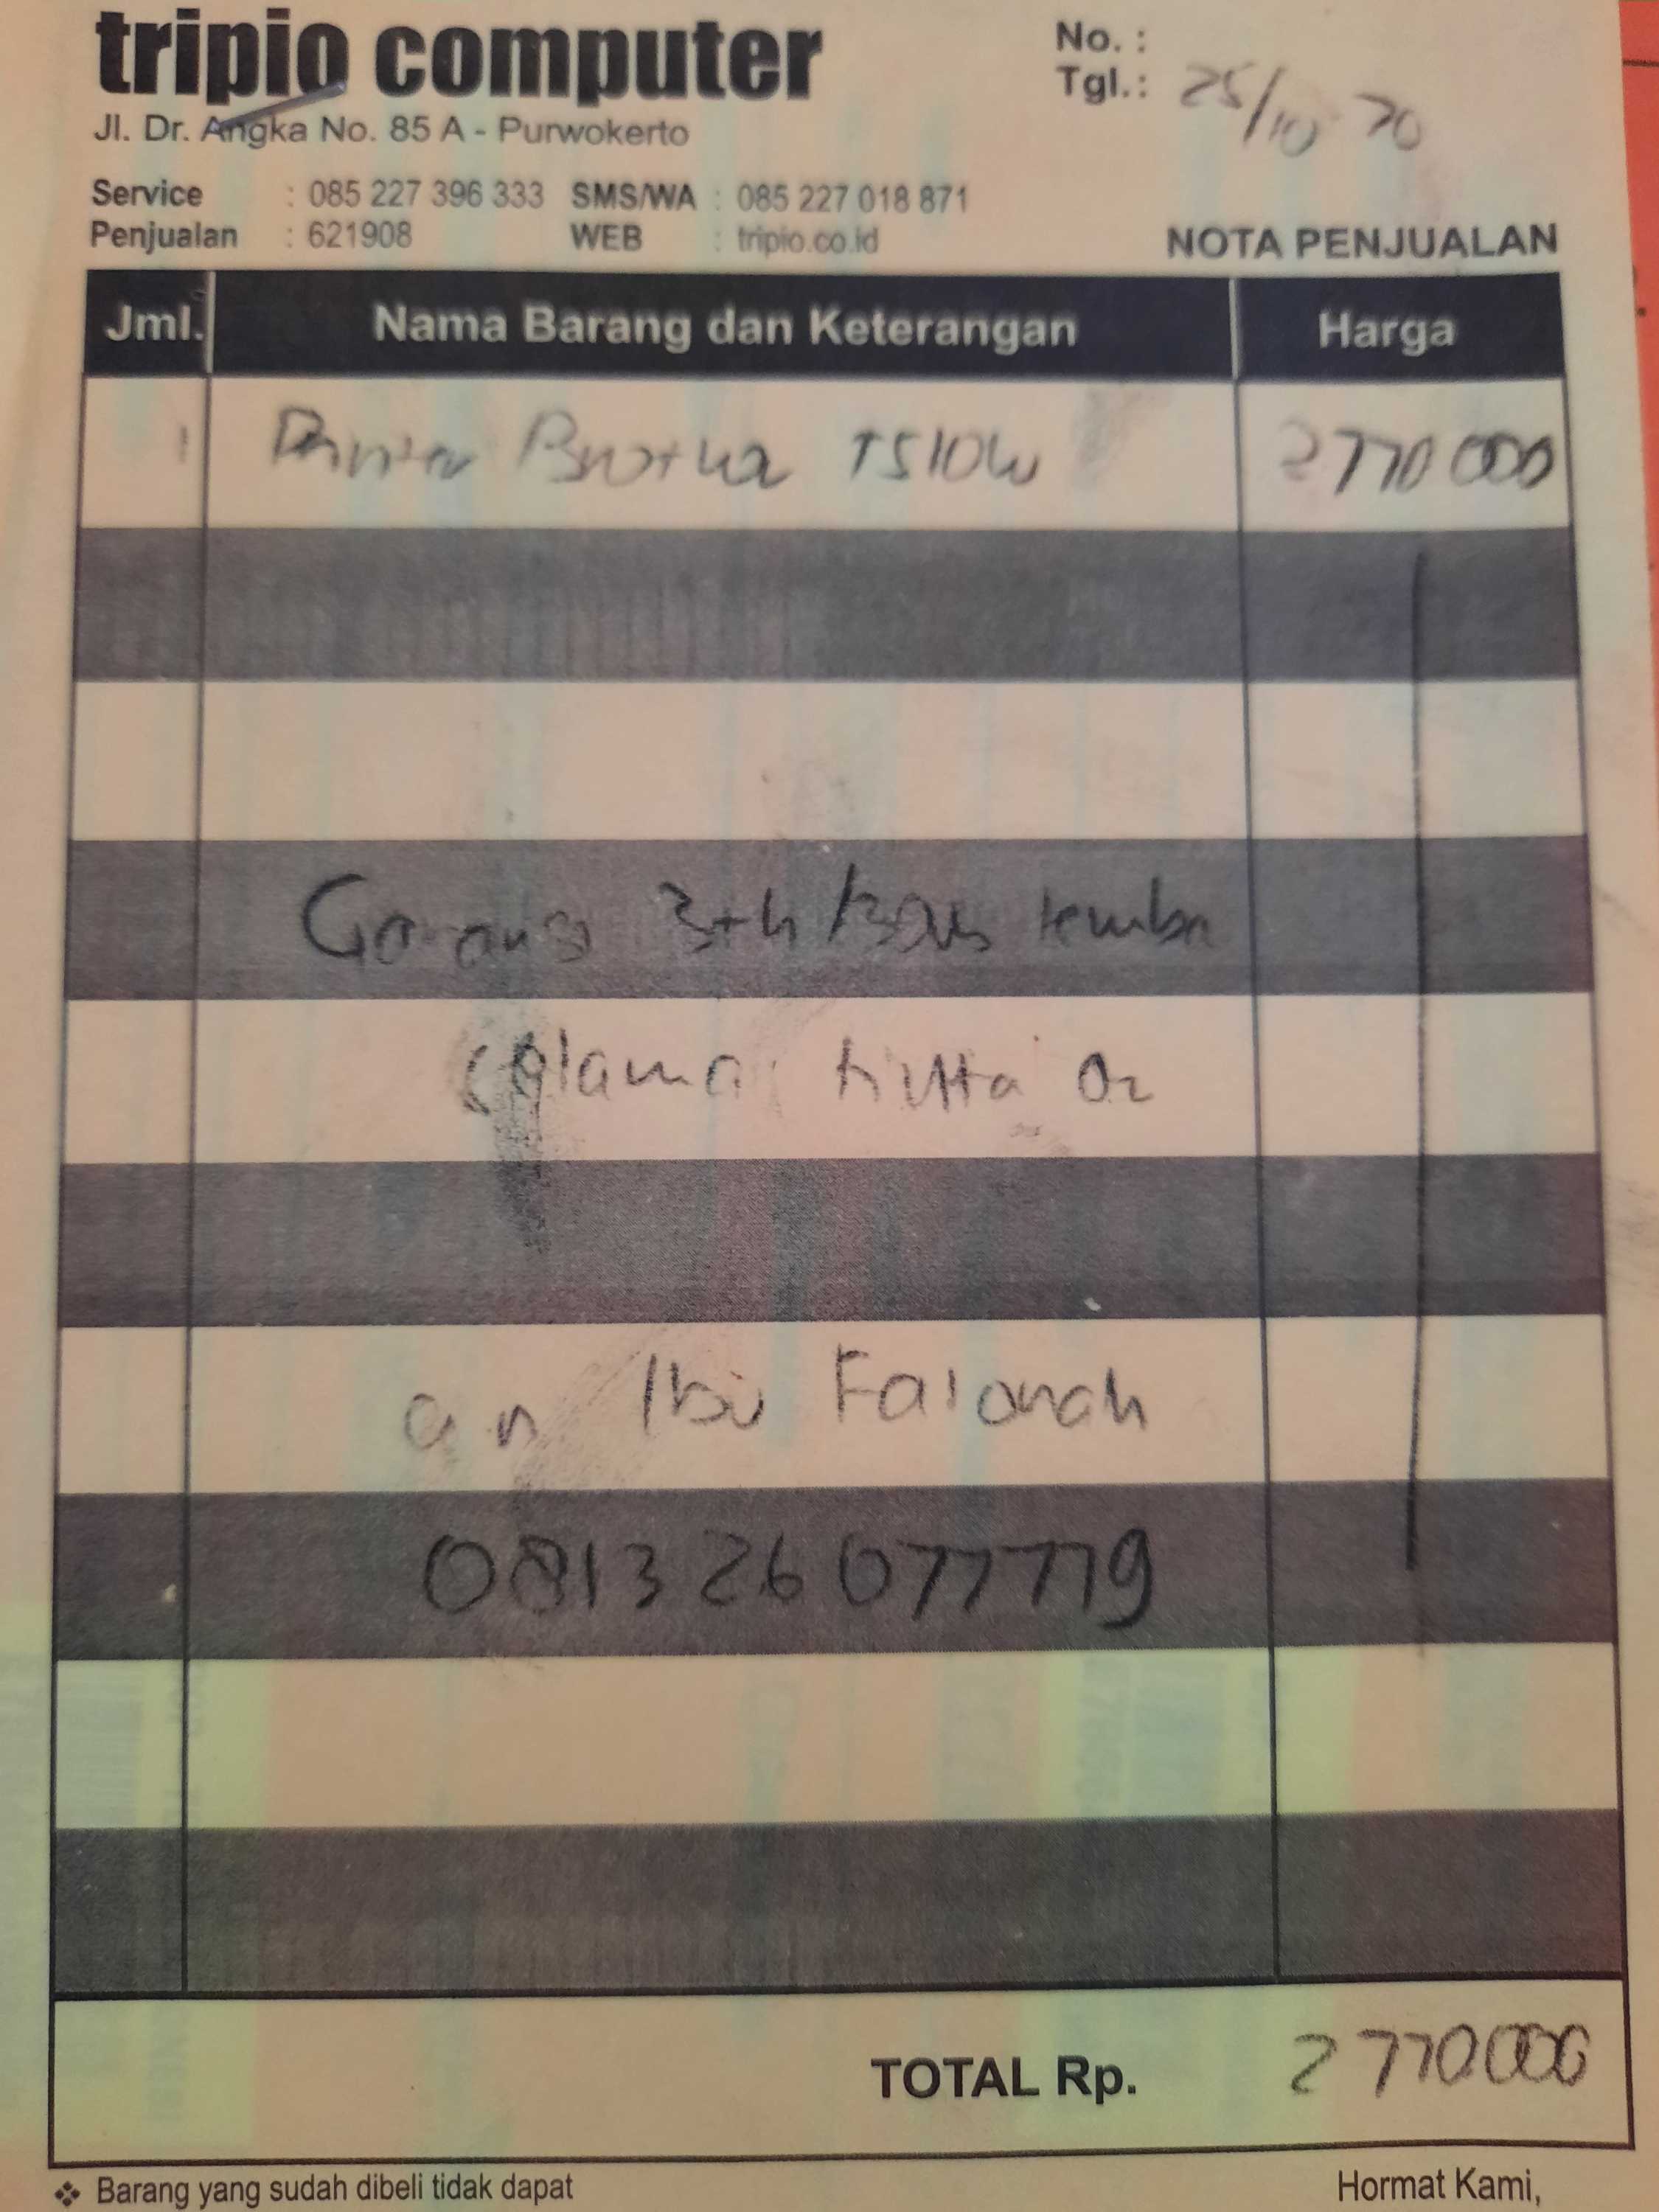 tripio computer
No. :
Jl. Dr. Angka No. 85 A - Purwokerto
Tgl.: 25/10 20
Service : 085 227 396 333 SMS/WA : 085 227 018 871
Penjualan : 621908 WEB : tripio.co.id
NOTA PENJUALAN
Jml. Nama Barang dan Keterangan Harga
1 Printer Brother T510W 2770 000
Garansi 3th /
an Ibu
0813 26 077779
TOTAL Rp. 2 770.000
❖ Barang yang sudah dibeli tidak dapat
Hormat Kami,